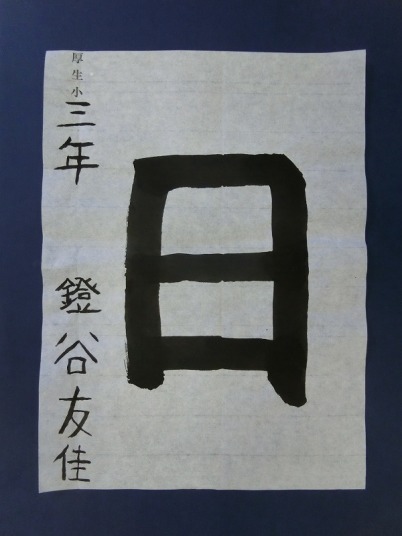 日
厚生小
三年
鐙谷友佳